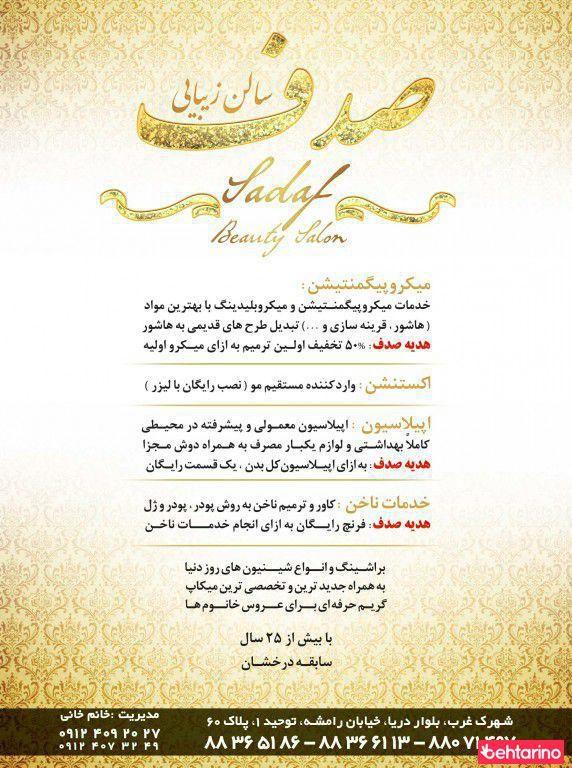 سالن زیبایی
صدف
Sadaf
Beauty Salon
میکروپیگمنتیشن :
خدمات میکروپیگمنتیشن و میکروبلیدینگ با بهترین مواد
( هاشور ، قرینه سازی و ...) تبدیل طرح های قدیمی به هاشور
هدیه صدف : ۵۰% تخفیف اولین ترمیم به ازای میکرو اولیه
اکستنشن : وارد کننده مستقیم مو ( نصب رایگان با لیزر )
اپیلاسیون : اپیلاسیون معمولی و پیشرفته در محیطی
کاملاً بهداشتی و لوازم یکبار مصرف به همراه دوش مجزا
هدیه صدف : به ازای اپیلاسیون کل بدن ، یک قسمت رایگان
خدمات ناخن : کاور و ترمیم ناخن به روش پودر ، پودر و ژل
هدیه صدف : فرنچ رایگان به ازای انجام خدمات ناخن
براشینگ و انواع شینیون های روز دنیا
به همراه جدید ترین و تخصصی ترین میکاپ
گریم حرفه ای برای عروس خانوم ها
با بیش از ۲۵ سال
سابقه درخشان
شهرک غرب، بلوار دریا، خیابان رامشه، توحید ۱، پلاک ۶۰
۸۸ ۳۶ ۵۱ ۸۶ – ۸۸ ۳۶ ۶۱ ۱۳ – ۸۸۰ ۷۱
مدیریت : خانم خانی
۰۹۱۲ ۴۰۹ ۲۰ ۲۷
۰۹۱۲ ۴۰۷ ۳۲ ۴۹
behtarino